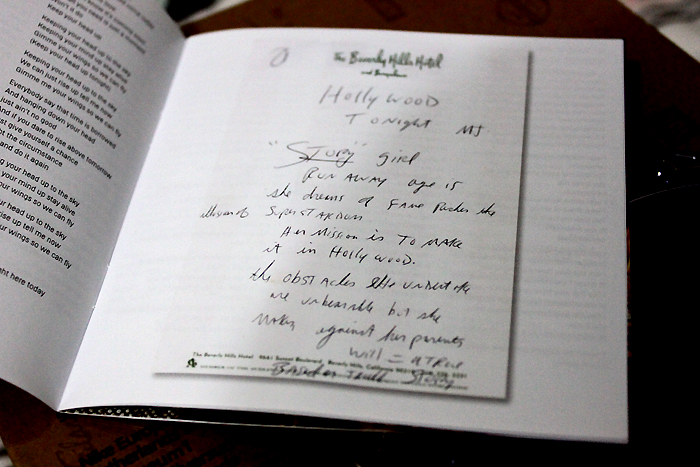 Keep your head up
Keeping your head up to the sky
Keeping your mind up stay alive
Gimme your wings so we can fly
(Keep your head up tonight)
Keeping your head up to the sky
We can just rise up tell me now
Gimme me your wings so we can fly
Everybody say that time is borrowed
And hanging down your head
just ain't no good
And if you dare to rise above tomorrow
just give yourself a chance
the circumstance
and do it again
g your head up to the sky
your mind up stay alive
your wings so we can fly
ur head up to the sky
rise up tell me now
ur wings so we can fly
ght here today
The Beverly Hills Hotel
and Bungalows
Hollywood
Tonight MJ
"Story" girl
Run away age 15
she dreams of Fame
Superstardom
Her Mission is To Make
it in Hollywood.
the obstacles she undertake
are unbearable but she
makes against her parents
will = a True
Story
The Beverly Hills Hotel 9641 Sunset Boulevard, Beverly Hills, California
Based on Truth